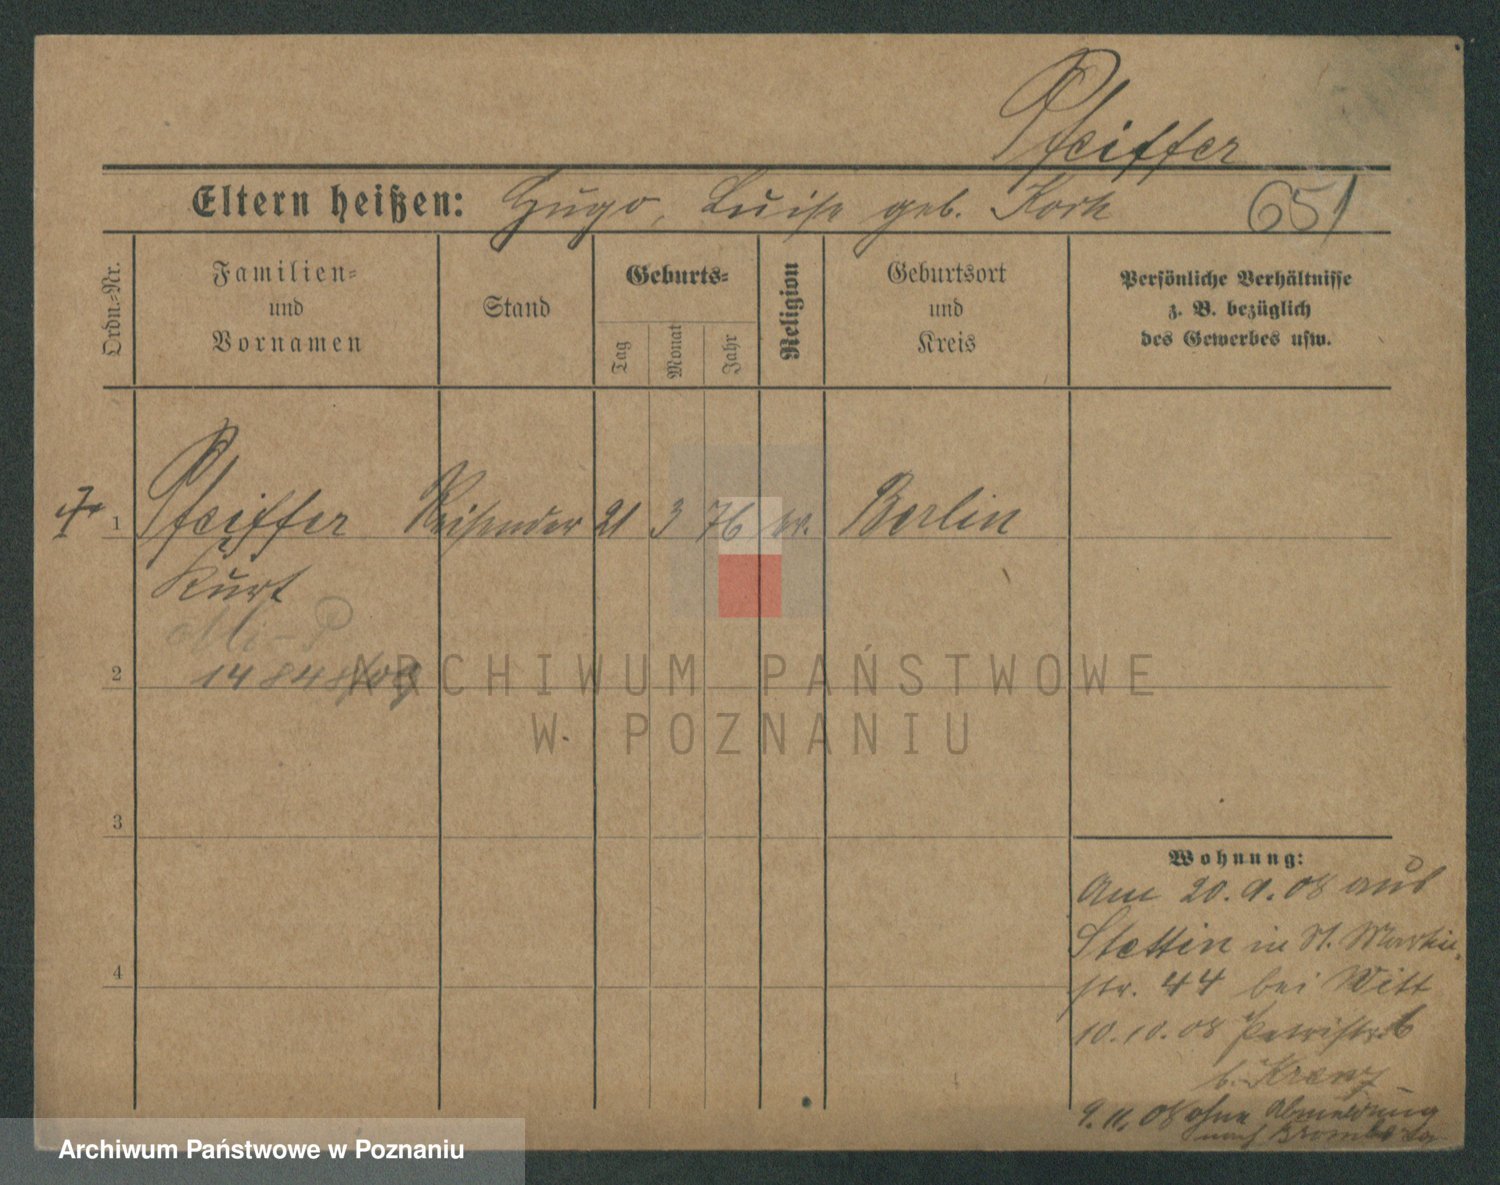 Pfeiffer
Eltern heißen: Hugo, Luise geb. Kork
651
Ordn.=Nr.
Familien=
und
Vornamen
Stand
Geburts=
Tag
Monat
Jahr
Religion
Geburtsort
und
Kreis
Persönliche Verhältnisse
z. B. bezüglich
des Gewerbes usw.
1 Pfeiffer Reisender 21 3 76 ev. Berlin
Kurt
2 14848/08
ARCHIWUM PAŃSTWOWE
W POZNANIU
3
Wohnung:
Am 20.9.08 aus
Stettin in St. Martin
4
str. 44 bei Witt
10.10.08 Petristr. 6
b. Krenz
9.11.08 ohne Abmeldung
nach Bromberg
Archiwum Państwowe w Poznaniu